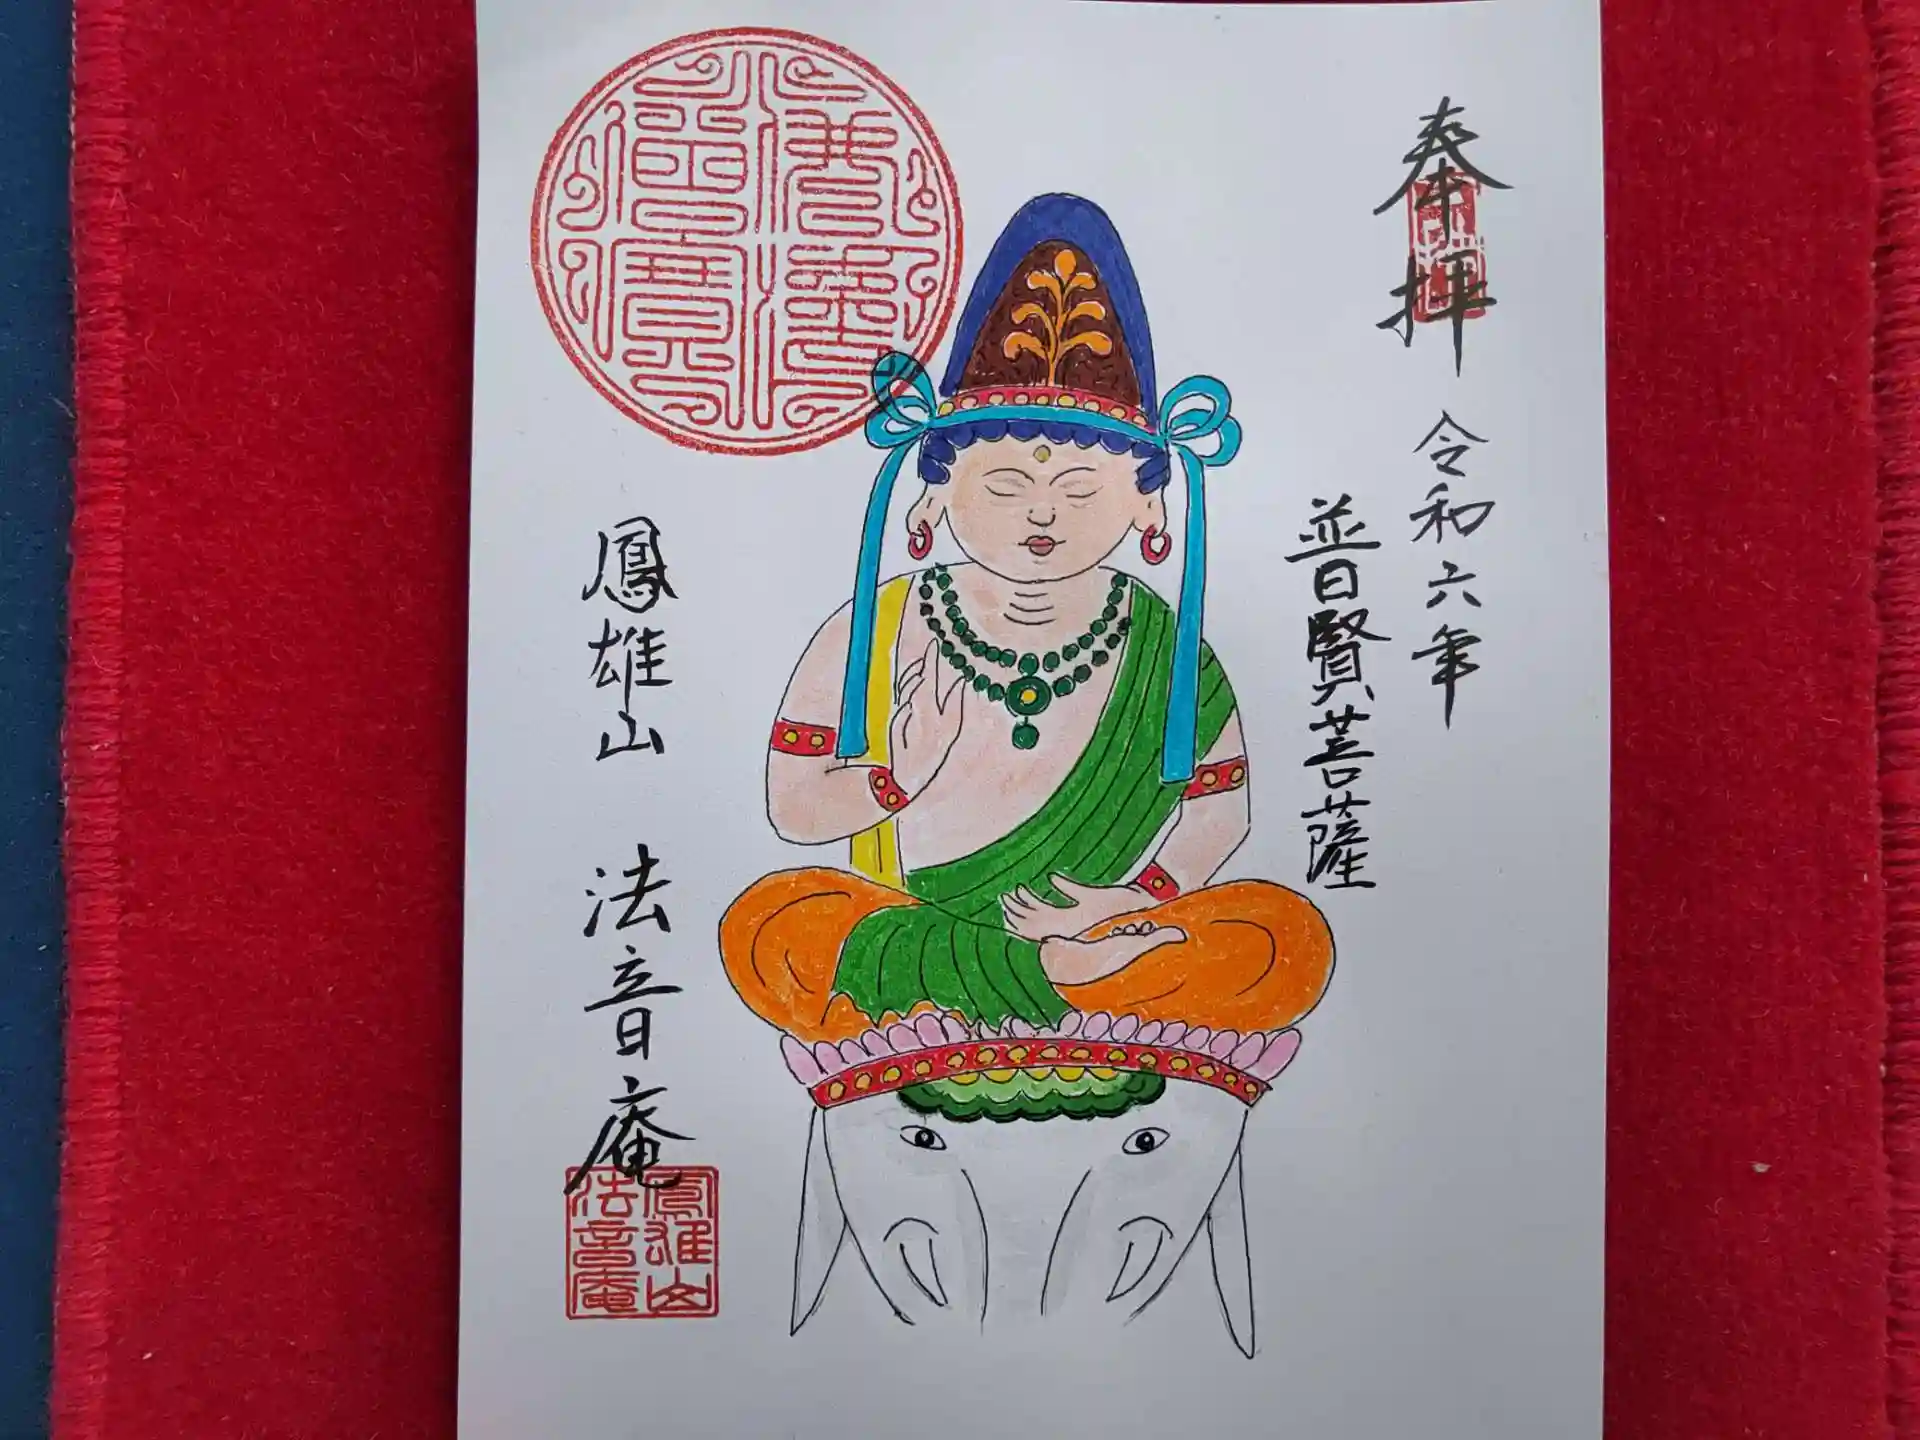 奉拝
令和六年
普賢菩薩
鳳雄山 法音庵
佛法僧寶
鳳雄山
法音庵